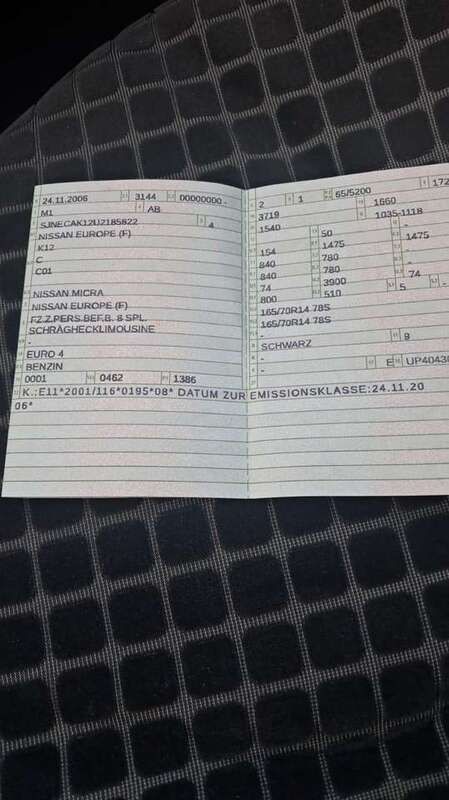 24.11.2006 3144 00000000 -
M1 AB
SJNECAK12U2185822 4
NISSAN EUROPE (F)
K12
C
C01
NISSAN MICRA
NISSAN EUROPE (F)
FZ.Z.PERS.BEF.B. 8 SPL.
SCHRÄGHECKLIMOUSINE
-
EURO 4
BENZIN
0001 0462 1386
2 1 65/5200 172
3719 1660
1540 1035-1118
50 -
154 1475 1475
840 780 -
840 780 -
74 3900 74
800 510 5 -
165/70R14 78S
165/70R14 78S
-
SCHWARZ 9
-
- E UP40430
K.:E11*2001/116*0195*08* DATUM ZUR EMISSIONSKLASSE:24.11.20
06*